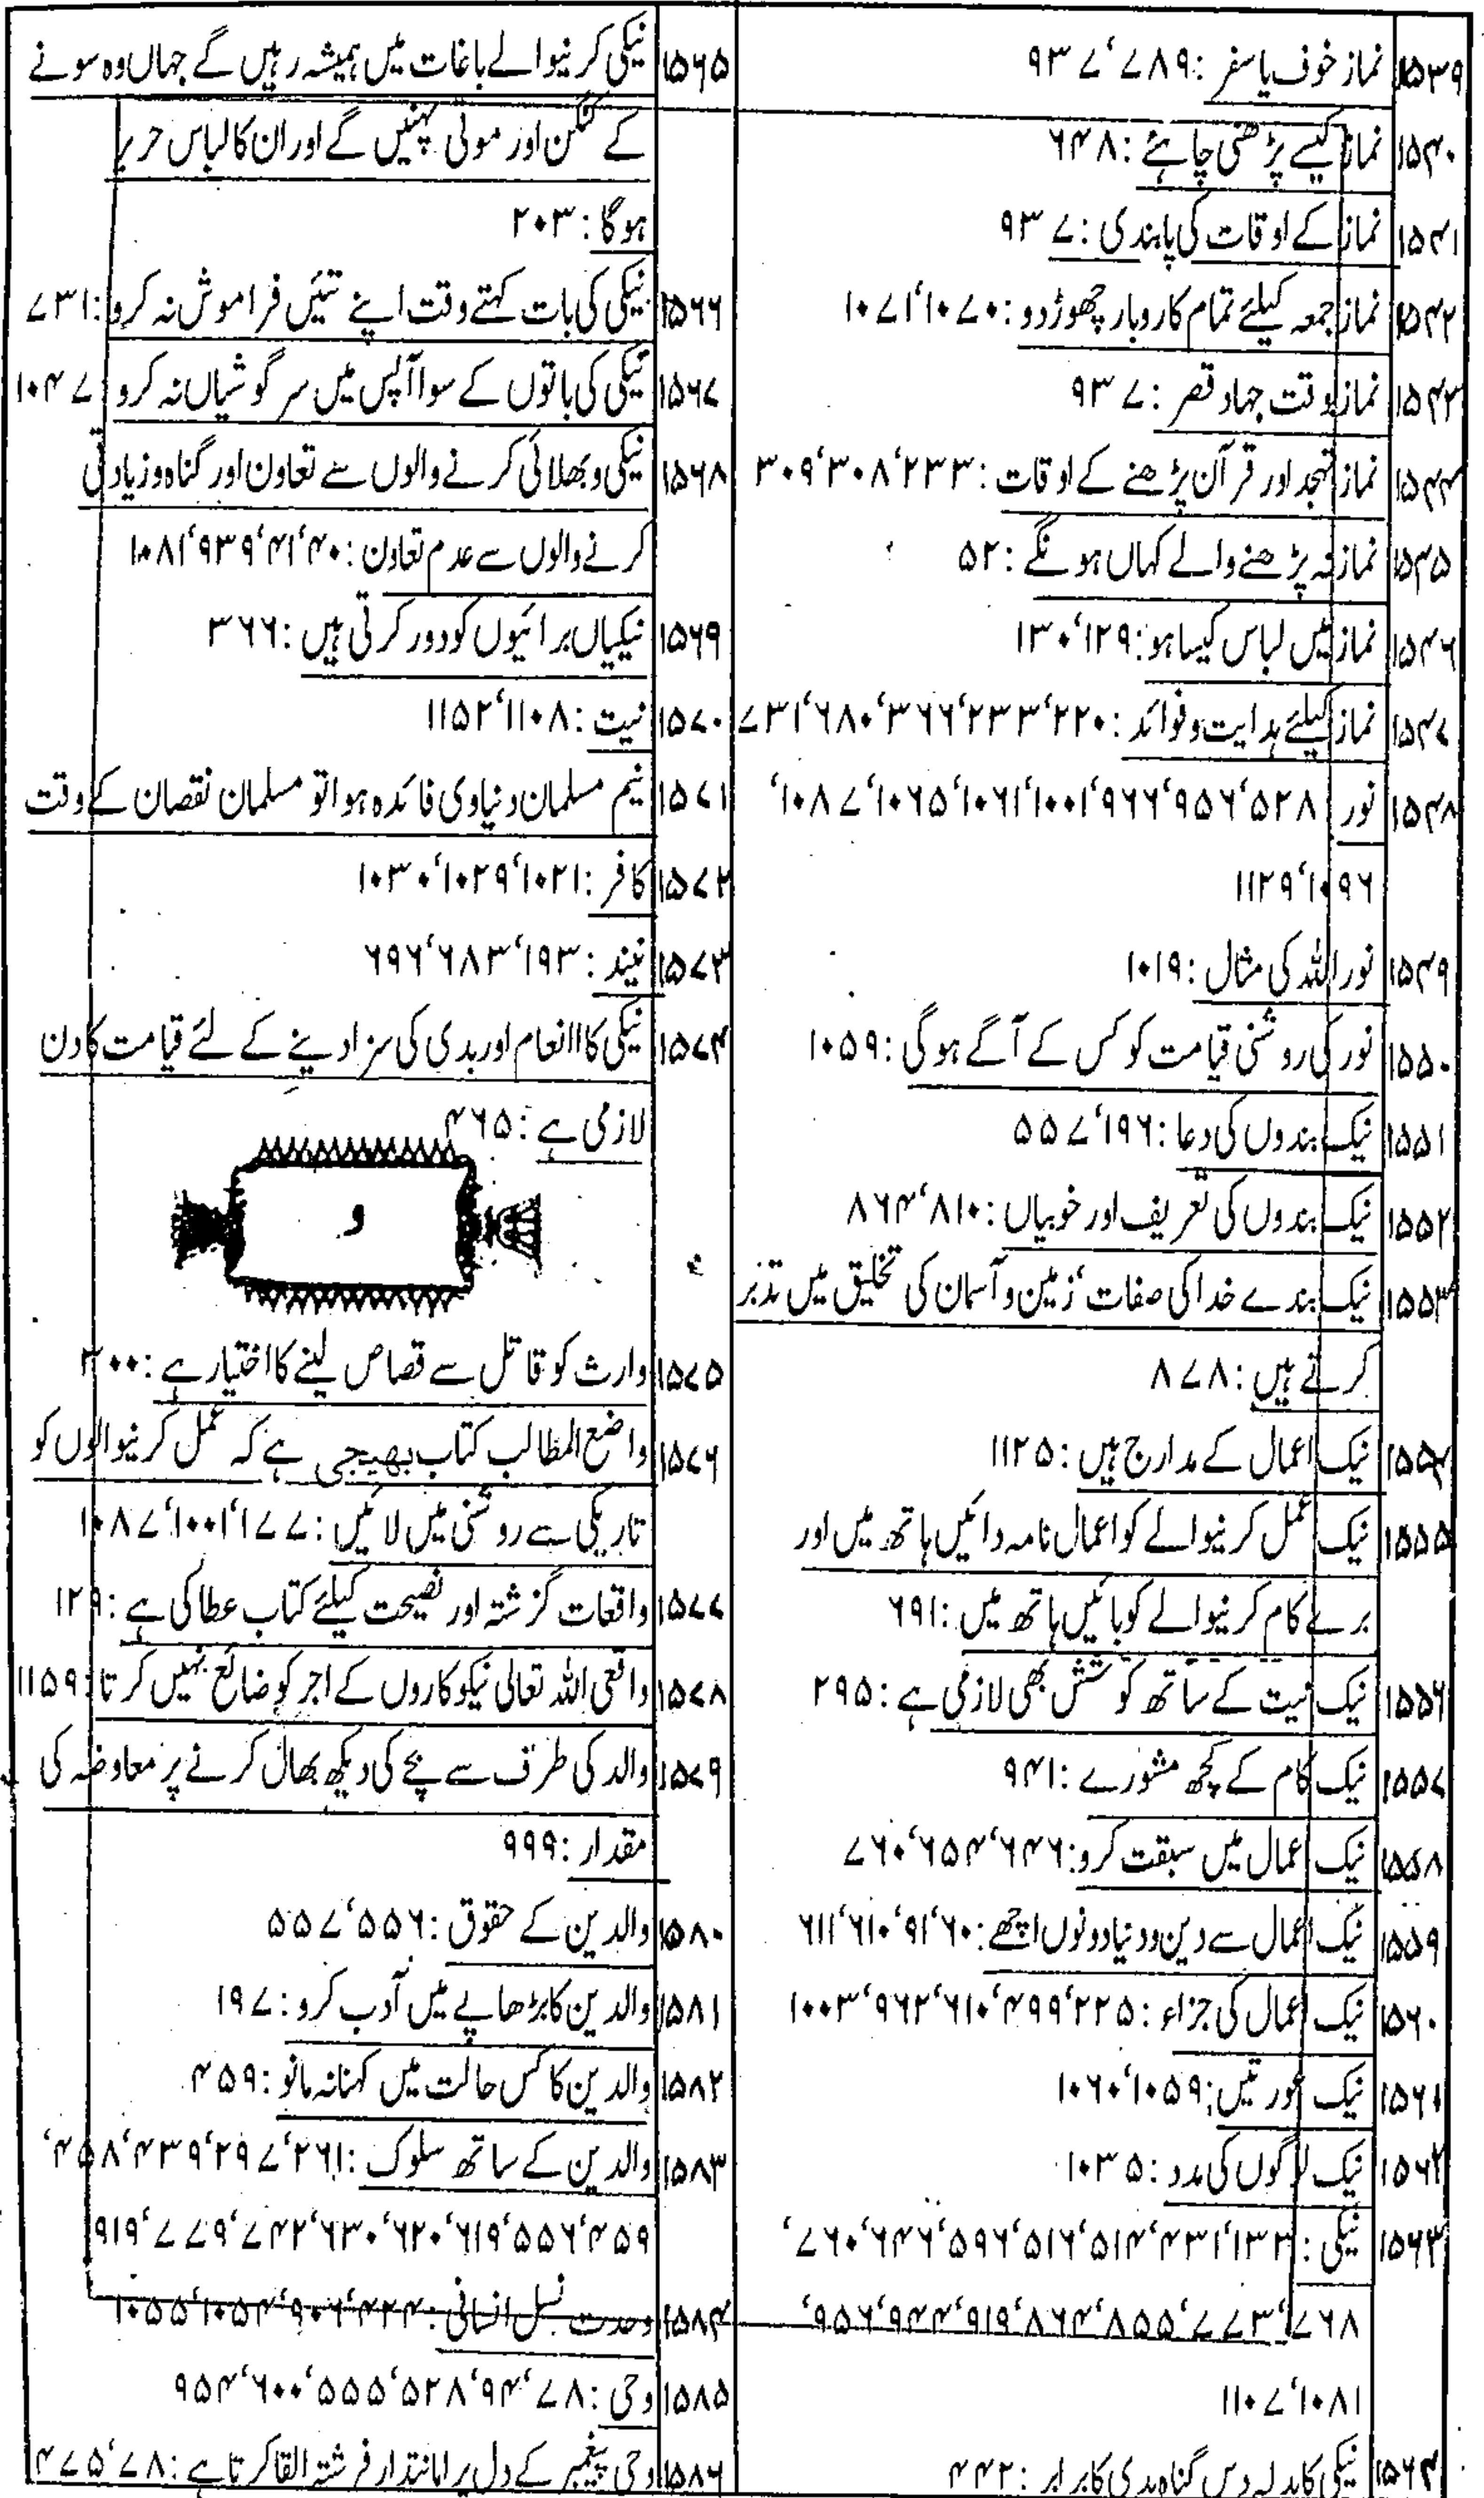 ۱۵۳۹ نماز خوف یا سفر : ۷۸۹‘۹۳۷
۱۵۴۰ نماز کیسے پڑھنی چاہئے : ۶۴۸
۱۵۴۱ نماز کے اوقات کی پابندی : ۹۳۷
۱۵۴۲ نماز جمعہ کیلئے تمام کاروبار چھوڑ دو : ۱۰۷۰‘۱۰۷۱
۱۵۴۳ نماز وقت جہاد قصر : ۹۳۷
۱۵۴۴ نماز تہجد اور قرآن پڑھنے کے اوقات : ۲۳۳‘۳۰۸‘۳۰۹
۱۵۴۵ نماز نہ پڑھنے والے کہاں ہونگے : ۵۲
۱۵۴۶ نماز میں لباس کیسا ہو : ۱۲۹‘۱۳۰
۱۵۴۷ نماز کیلئے ہدایت و فوائد : ۲۲۰‘۲۳۳‘۳۶۶‘۶۸۰‘۷۳۱
۱۵۴۸ نور ۵۲۸‘۹۵۶‘۹۶۶‘۱۰۰۱‘۱۰۶۱‘۱۰۶۵‘۱۰۸۷‘
۱۰۹۶‘۱۱۲۹
۱۵۴۹ نور اللہ کی مثال : ۱۰۱۹
۱۵۵۰ نور کی روشنی قیامت کو کس کے آگے ہوگی : ۱۰۵۹
۱۵۵۱ نیک بندوں کی دعا : ۱۹۶‘۵۵۷
۱۵۵۲ نیک بندوں کی تعریف اور خوبیاں : ۸۱۰‘۸۶۴
۱۵۵۳ نیک بندے خدا کی صفات‘ زمین و آسمان کی تخلیق میں تدبر
کرتے ہیں : ۸۷۸
۱۵۵۴ نیک اعمال کے مدارج ہیں : ۱۱۲۵
۱۵۵۵ نیک عمل کرنیوالے کو اعمال نامہ دائیں ہاتھ میں اور
برے کام کرنیوالے کو بائیں ہاتھ میں : ۶۹۱
۱۵۵۶ نیک نیت کے ساتھ کوشش بھی لازمی ہے : ۲۹۵
۱۵۵۷ نیک کام کے کچھ مشورے : ۹۴۱
۱۵۵۸ نیک اعمال میں سبقت کرو : ۶۴۶‘۶۵۴‘۷۶۰
۱۵۵۹ نیک اعمال سے دین و دنیا دونوں اچھے : ۶۰‘۹۱‘۶۱۰‘۶۱۱
۱۵۶۰ نیک اعمال کی جزاء : ۲۲۵‘۴۹۹‘۶۱۰‘۹۶۲‘۱۰۰۳
۱۵۶۱ نیک عورتیں : ۱۰۵۹‘۱۰۶۰
۱۵۶۲ نیک لوگوں کی مدد : ۱۰۳۵
۱۵۶۳ نیکی : ۱۳۲‘۴۳۱‘۵۱۴‘۵۱۶‘۵۹۶‘۶۴۶‘۷۶۰‘
۷۶۸‘۷۷۳‘۸۵۵‘۸۶۴‘۹۱۹‘۹۴۴‘۹۵۶‘
۱۰۸۱‘۱۱۰۷
۱۵۶۴ نیکی کا بدلہ دس گناہ بدی کا برابر : ۴۴۲
۱۵۶۵ نیکی کرنیوالے باغات میں ہمیشہ رہیں گے جہاں وہ سونے
کے کنگن اور موتی پہنیں گے اور ان کا لباس حریر
ہوگا : ۲۰۳
۱۵۶۶ نیکی کی بات کہتے وقت اپنے تئیں فراموش نہ کرو : ۷۳۱
۱۵۶۷ نیکی کی باتوں کے سوا آپس میں سرگوشیاں نہ کرو : ۱۰۴۷
۱۵۶۸ نیکی و بھلائی کرنے والوں سے تعاون اور گناہ و زیادتی
کرنے والوں سے عدم تعاون : ۴۰‘۴۱‘۹۳۹‘۱۰۸۱
۱۵۶۹ نیکیاں برائیوں کو دور کرتی ہیں : ۳۶۶
۱۵۷۰ نیت : ۱۱۰۸‘۱۱۵۲
۱۵۷۱ نیم مسلمان دنیاوی فائدہ ہوا تو مسلمان نقصان کے وقت
۱۵۷۲ کافر : ۱۰۲۱‘۱۰۲۹‘۱۰۳۰
۱۵۷۳ نیند : ۱۹۳‘۶۸۳‘۶۹۶
۱۵۷۴ نیکی کا انعام اور بدی کی سزا دینے کے لئے قیامت کا دن
لازمی ہے : ۴۶۵
و
۱۵۷۵ وارث کو قاتل سے قصاص لینے کا اختیار ہے : ۳۰۰
۱۵۷۶ واضع المطالب کتاب بھیجی ہے کہ عمل کرنیوالوں کو
تاریکی سے روشنی میں لائیں : ۱۷۷‘۱۰۰۱‘۱۰۸۷
۱۵۷۷ واقعات گزشتہ اور نصیحت کیلئے کتاب عطا کی ہے : ۱۲۹
۱۵۷۸ واقعی اللہ تعالیٰ نیکوکاروں کے اجر کو ضائع نہیں کرتا : ۱۱۵۹
۱۵۷۹ والد کی طرف سے بچے کی دیکھ بھال کرنے پر معاوضہ کی
مقدار : ۹۹۹
۱۵۸۰ والدین کے حقوق : ۵۵۶‘۵۵۷
۱۵۸۱ والدین کا بڑھاپے میں آدب کرو : ۱۹۷
۱۵۸۲ والدین کا کس حالت میں کہنا نہ مانو : ۴۵۹
۱۵۸۳ والدین کے ساتھ سلوک : ۲۶۱‘۲۹۷‘۴۳۹‘۴۵۸‘
۴۵۹‘۵۵۶‘۶۱۹‘۶۲۰‘۶۳۰‘۷۴۲‘۷۷۹‘۹۱۹
۱۵۸۴ وحدت نسل انسانی : ۴۲۴‘۹۰۶‘۱۰۵۴‘۱۰۵۵
۱۵۸۵ وحی : ۷۸‘۹۴‘۵۲۸‘۵۵۵‘۶۰۰‘۹۵۴
۱۵۸۶ وحی پیغمبر کے دل پر امانتدار فرشتہ القا کرتا ہے : ۷۸‘۴۷۵